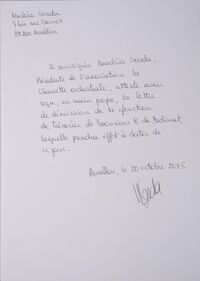 Marlène Sanda
7 bis rue Carnot
89200 Avallon
Je soussignée Marlène Sanda,
Présidente de l'association la
Clarette orchestrale, atteste avoir
reçu, en main propre, la lettre
de démission de la fonction
de trésorier de Monsieur B. de
laquelle prendra effet à dater de
ce jour.
Avallon, le 20 octobre 2025